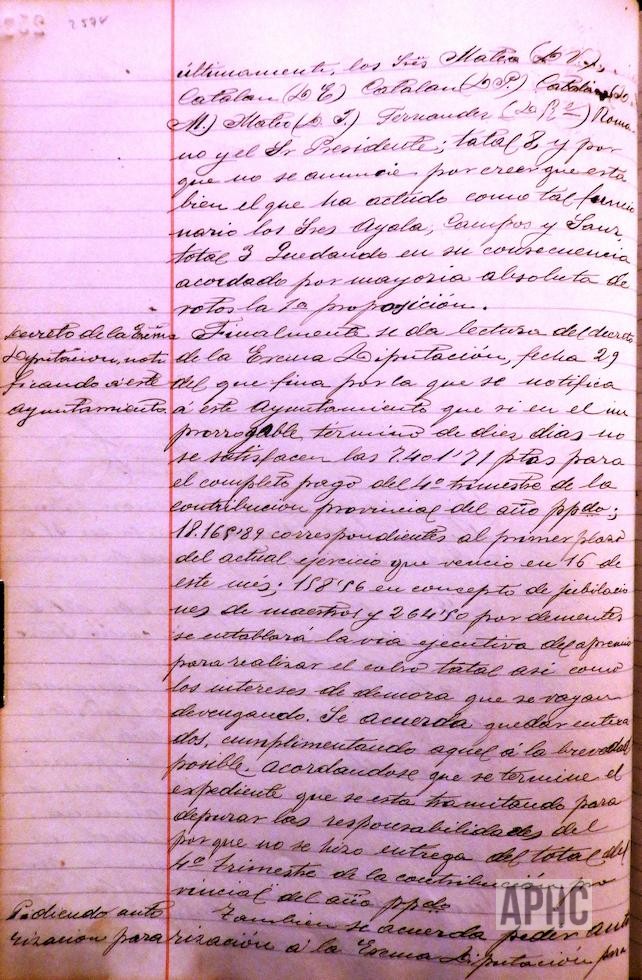 257v
últimamente, los Srs Mateo (D. V.),
Catalan (D. E) Catalan (D. P.) Catalan (D.
M.) Mateo (D. J.) Fernandez (D. Re) Roma
no y el Sr Presidente; total 8, y por
que no se anuncie por creer que esta
bien el que ha actudo como tal funcio
nario los Sres Ayala, Campos y Sanz,
total 3 Quedando en su consecuencia
acordado por mayoria absoluta de
votos la 1a proposición.
Decreto de la Exma
Diputacion, noti
ficando a este
Ayuntamiento
Finalmente se da lectura del decreto
de la Excma Diputación, fecha 29
del que fina por la que se notifica
á este Ayuntamiento que si en el im
prorrogable término de diez dias no
se satisfacen las 7.401'71 ptas para
el completo pago del 4º trimestre de la
contribución provincial del año ppdo;
18.165'89 correspondientes al primer plazo
del actual ejercicio que vencio en 16 de
este més; 158'56 en concepto de jubilacio
nes de maestros y 264'50 por dementes
se entablará la via ejecutiva de apremio
para realizar el cobro total asi como
los intereses de demora que se vayan
devengando. Se acuerda quedar entera
dos, cumplimentando aquel á la brevedad
posible. acordandose que se termine el
expediente que se esta tramitando para
depurar las responsabilidades del
porque no se hizo entrega del total del
4º trimestre de la contribución pro
vincial del año ppdo
Pidiendo auto
rizacion para
Tambien se acuerda pedir auto
rización á la Excma Diputación para
APHC